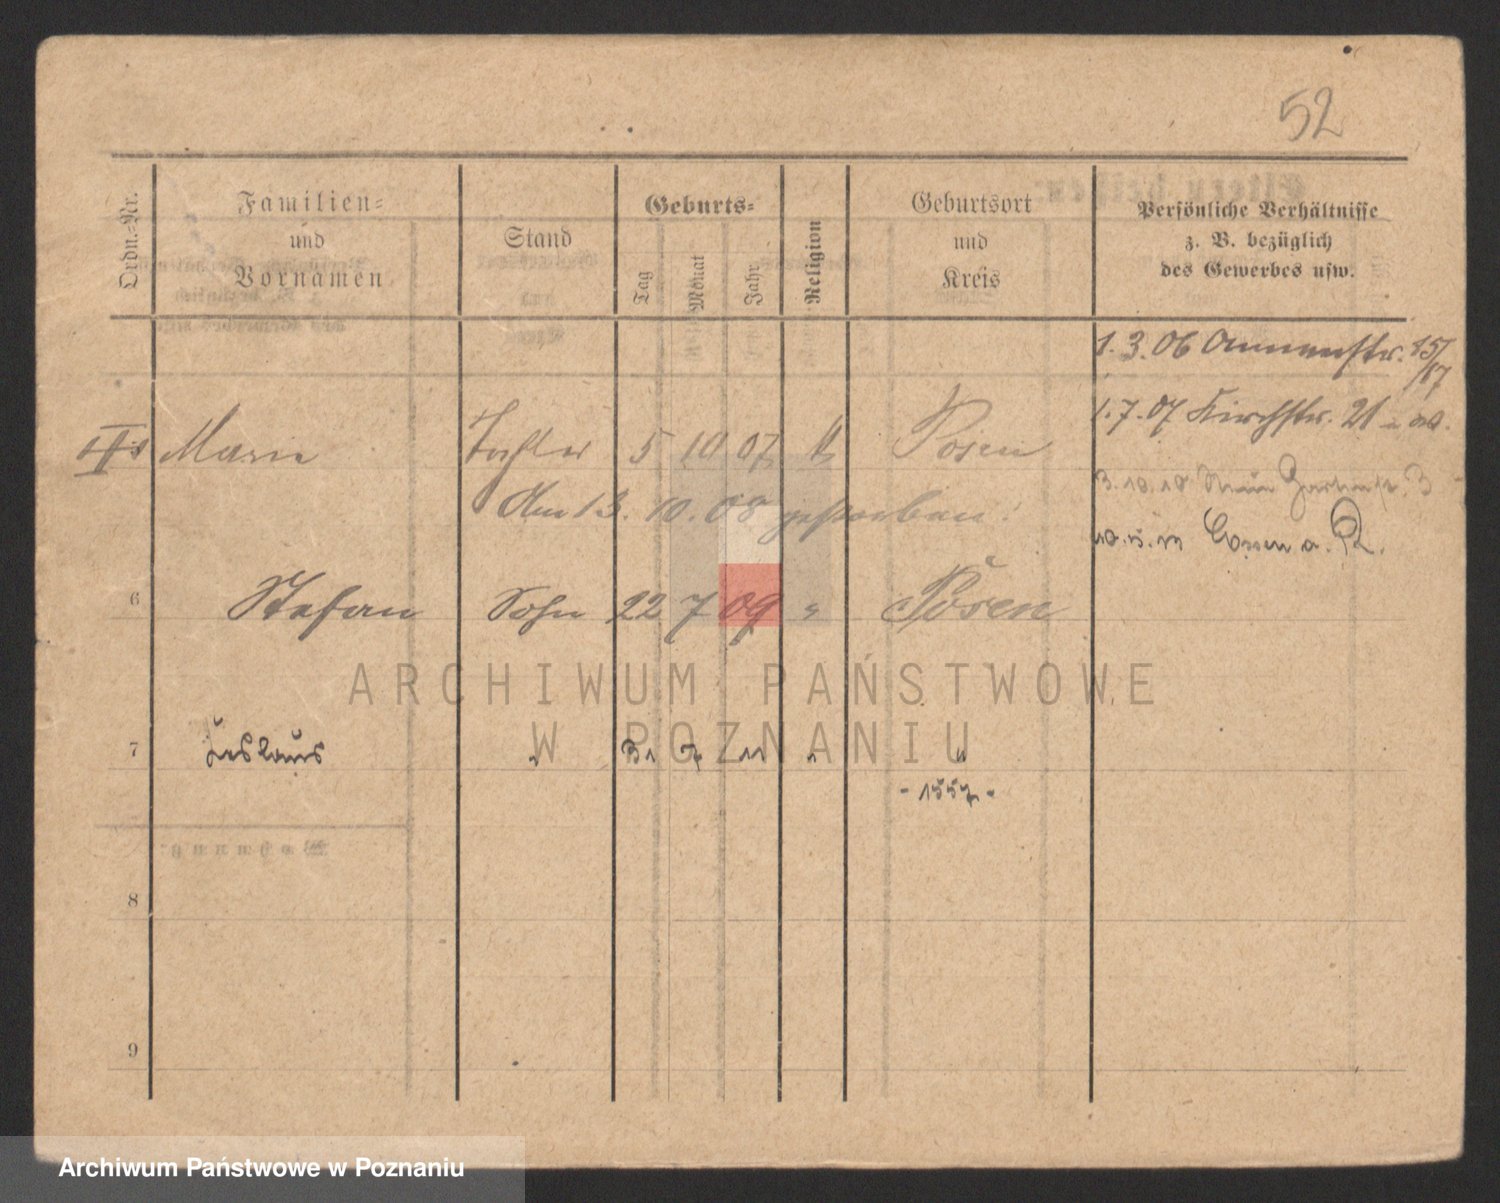 52
Ordn.-Nr.
Familien-
und
Vornamen
Stand
Geburts-
Tag
Monat
Jahr
Religion
Geburtsort
und
Kreis
Persönliche Verhältnisse
z. B. bezüglich
des Gewerbes usw.
1. 3. 06 Annenstr. 15/
/17
1. 7. 07 Kirchstr. 21
Marie Tochter 5 10 07 Posen
3. 10. 10 Gartenstr. 3
Am 13. 10. 08 gestorben!
Essen a. R.
6 Stefan Sohn 22 7 09 " Posen
ARCHIWUM PAŃSTWOWE
W POZNANIU
7 " 31 7 11 " "
8
9
Wohnung:
Archiwum Państwowe w Poznaniu